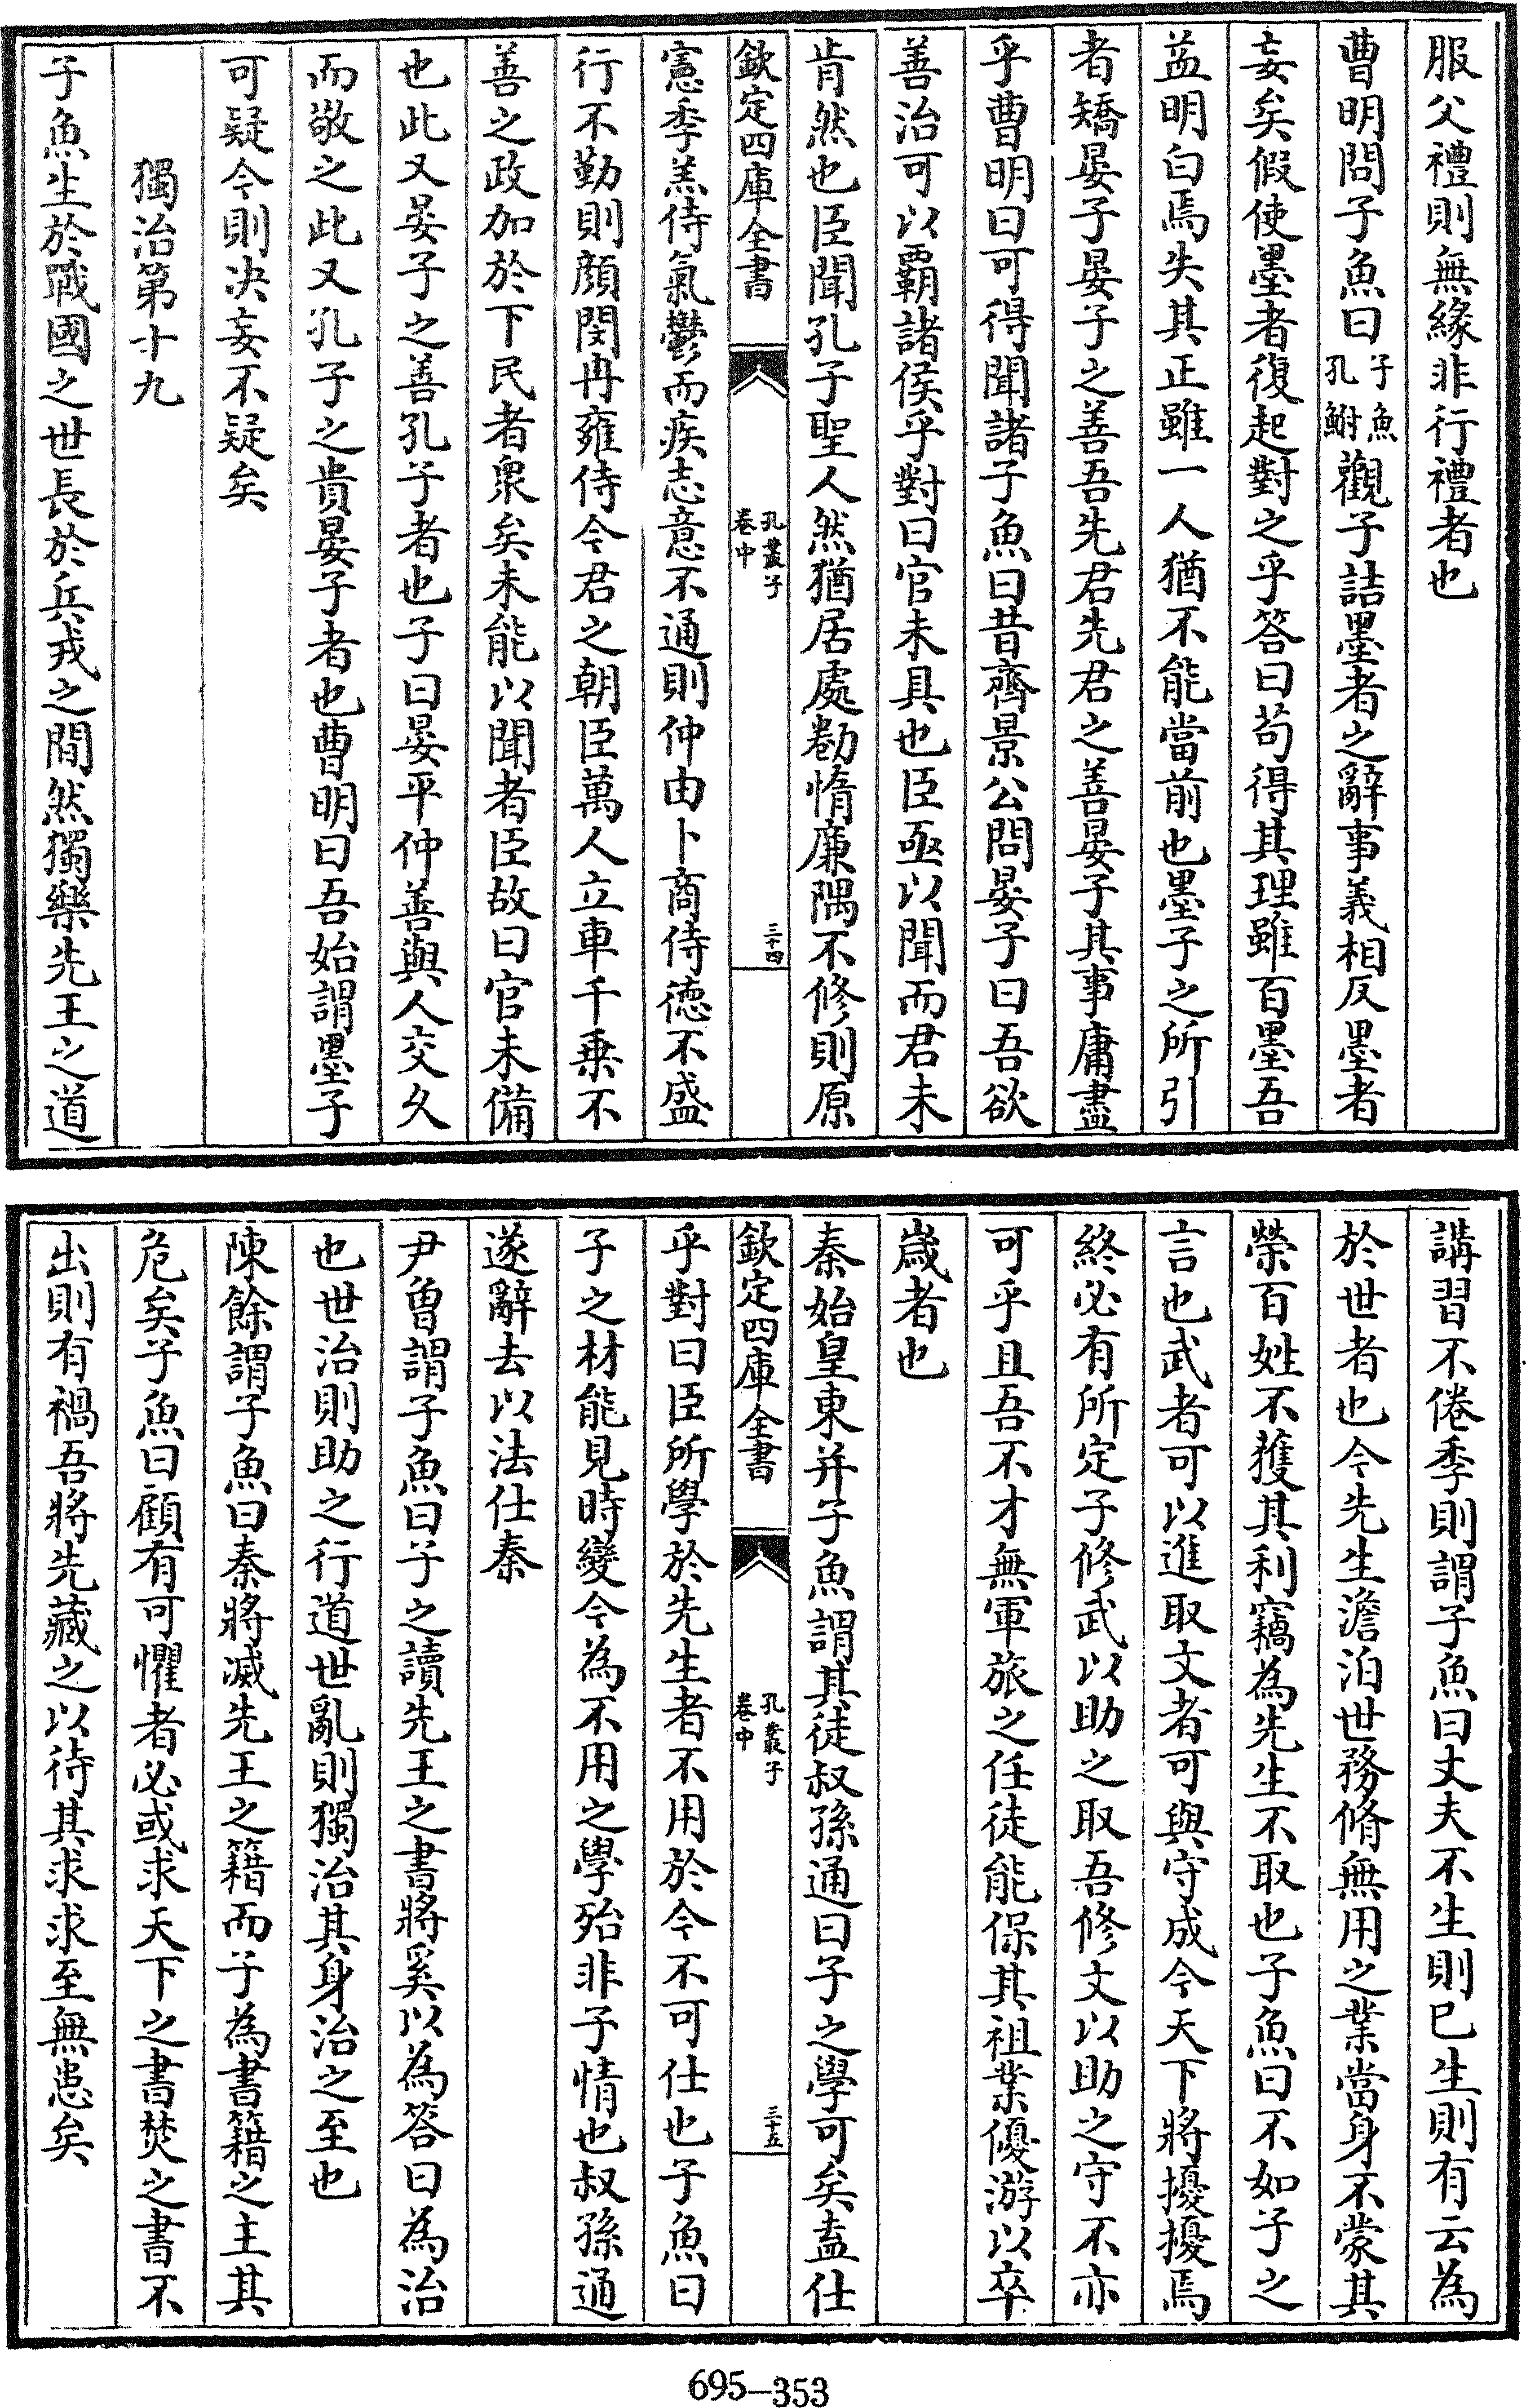 服父禮則無緣非行禮者也
曹明問子魚曰子魚孔鮒觀子詰墨者之辭事義相反墨者
妄矣假使墨者復起對之乎答曰苟得其理雖百墨吾
益明白焉失其正雖一人猶不能當前也墨子之所引
者矯晏子晏子之善吾先君先君之善晏子其事庸盡
乎曹明曰可得聞諸子魚曰昔齊景公問晏子曰吾欲
善治可以霸諸侯乎對曰官未具也臣亟以聞而君未
肯然也臣聞孔子聖人然猶居處勌惰廉隅不修則原
欽定四庫全書
孔叢子
卷中
三十四
憲季羔侍氣鬱而疾志意不通則仲由卜商侍徳不盛
行不勤則顔閔冉雍侍今君之朝臣萬人立車千乗不
善之政加於下民者衆矣未能以聞者臣故曰官未備
也此又晏子之善孔子者也子曰晏平仲善與人交久
而敬之此又孔子之貴晏子者也曹明曰吾始謂墨子
可疑今則決妄不疑矣
獨治第十九
子魚生於戰國之世長於兵戎之間然獨樂先王之道
講習不倦季則謂子魚曰丈夫不生則已生則有云為
於世者也今先生澹泊世務脩無用之業當身不蒙其
榮百姓不獲其利竊為先生不取也子魚曰不如子之
言也武者可以進取文者可與守成今天下將擾擾焉
終必有所定子修武以助之取吾修文以助之守不亦
可乎且吾不才無軍旅之任徒能保其祖業優游以卒
歲者也
秦始皇東并子魚謂其徒叔孫通曰子之學可矣盍仕
欽定四庫全書
孔叢子
卷中
三十五
乎對曰臣所學於先生者不用於今不可仕也子魚曰
子之材能見時變今為不用之學殆非子情也叔孫通
遂辭去以法仕秦
尹曾謂子魚曰子之讀先王之書將奚以為答曰為治
也世治則助之行道世亂則獨治其身治之至也
陳餘謂子魚曰秦將滅先王之籍而子為書籍之主其
危矣子魚曰顧有可懼者必或求天下之書焚之書不
出則有禍吾將先藏之以待其求求至無患矣
695-353